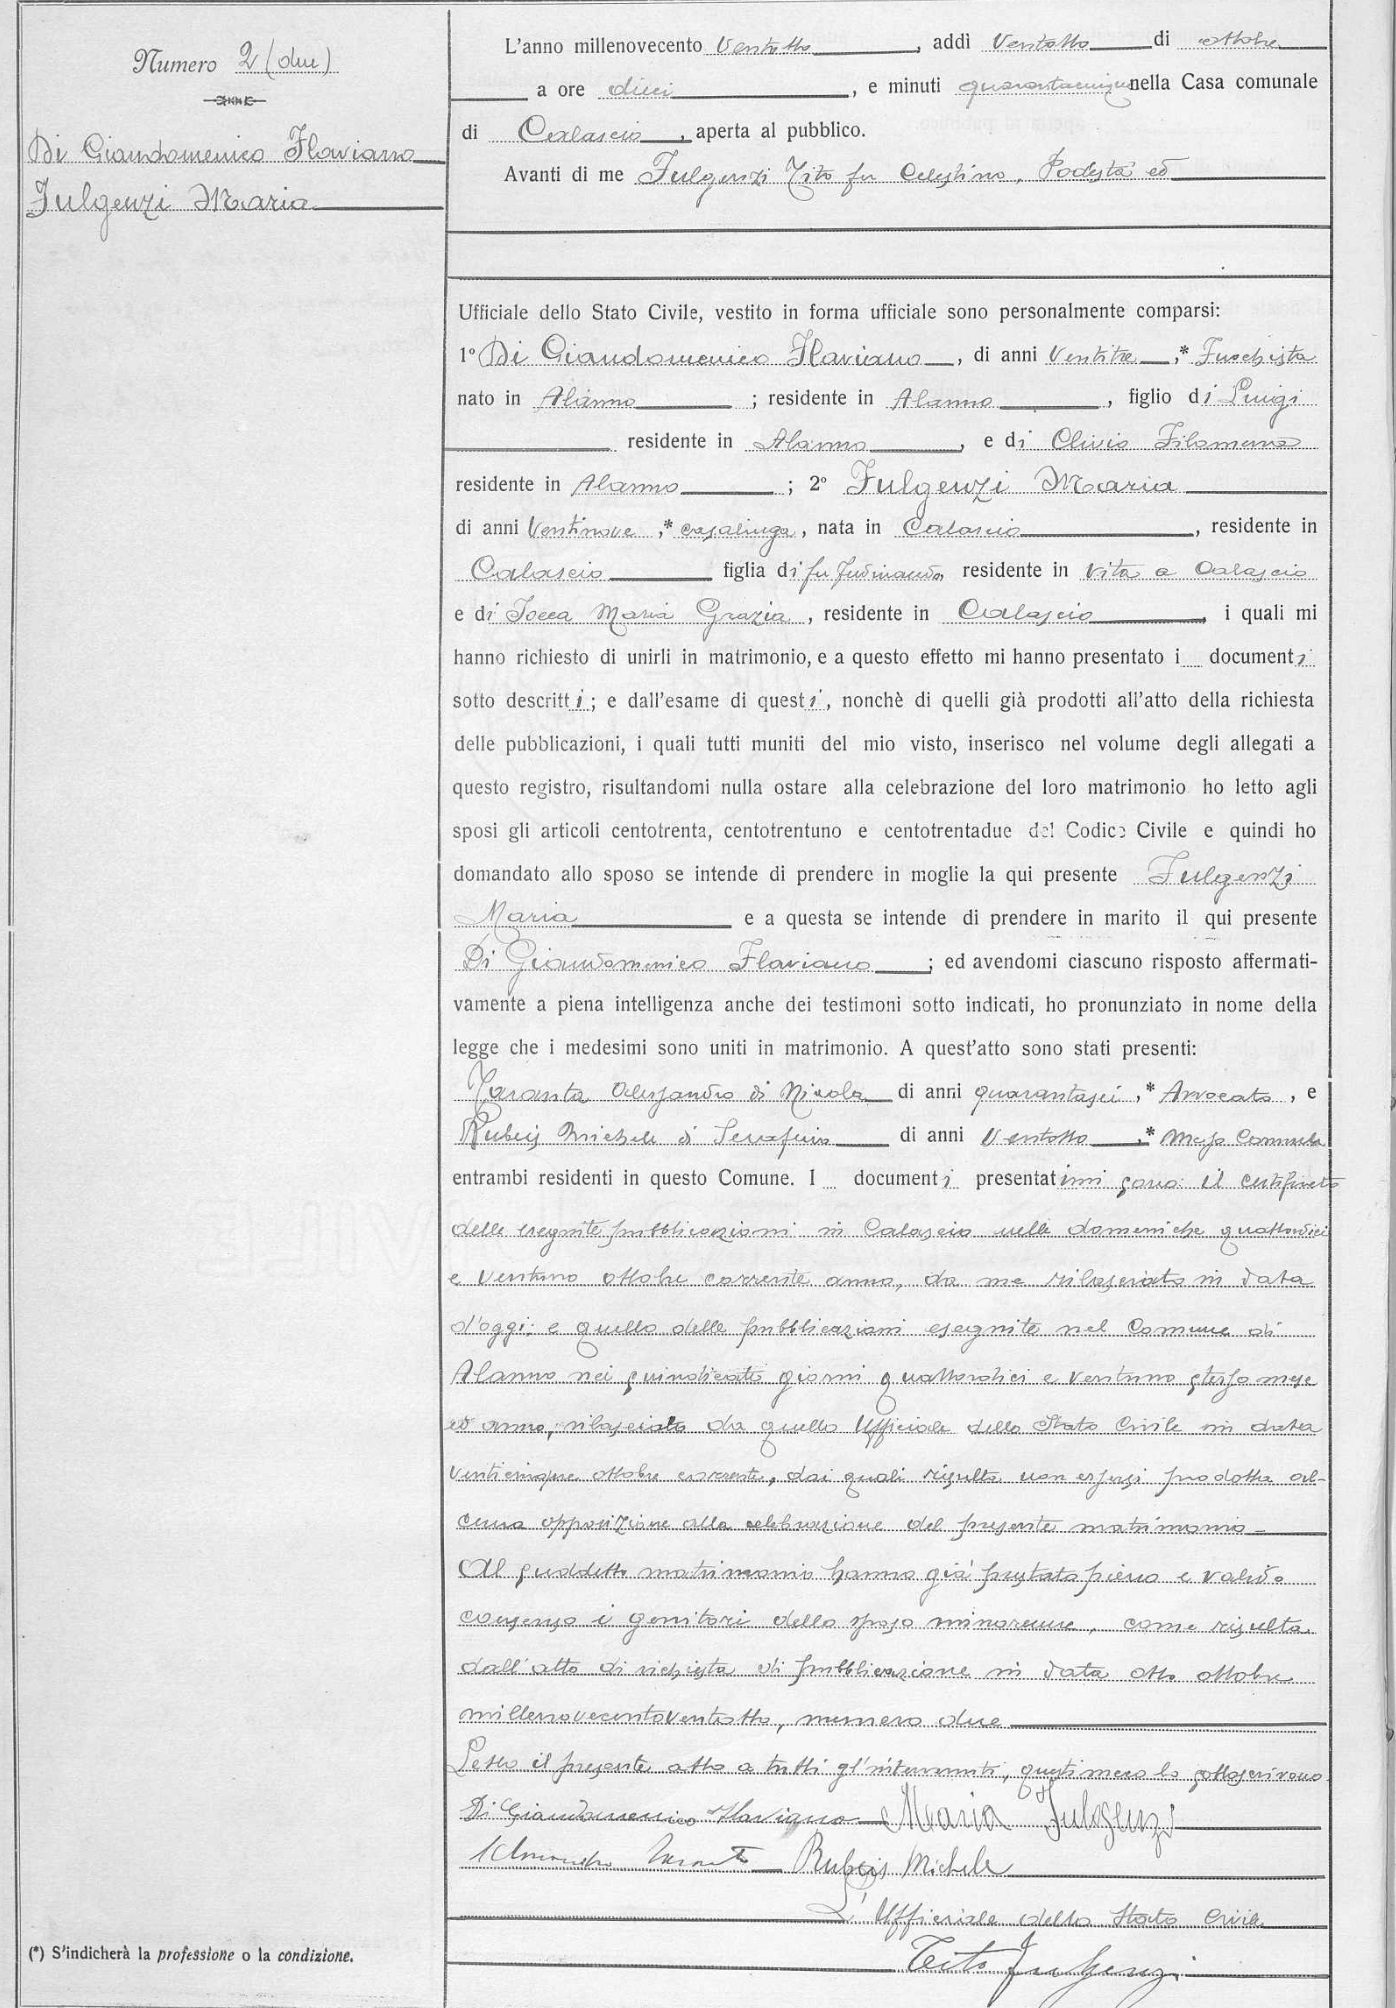 Numero 2 (due)
Di Giandomenico Flaviano
Fulgenzi Maria
L'anno millenovecento Ventotto, addì Ventotto di ottobre
a ore dieci, e minuti quarantacinque nella Casa comunale
di Calascio, aperta al pubblico.
Avanti di me Fulgenzi Tito fu Celestino, Podestà ed
Ufficiale dello Stato Civile, vestito in forma ufficiale sono personalmente comparsi:
1° Di Giandomenico Flaviano, di anni Ventitre,* Fuochista
nato in Alanno; residente in Alanno, figlio di Luigi
residente in Alanno, e di Clivio Filomena
residente in Alanno; 2° Fulgenzi Maria
di anni Ventinove,* casalinga, nata in Calascio, residente in
Calascio figlia di fu Ferdinando, residente in vita a Calascio
e di Tocca Maria Grazia, residente in Calascio, i quali mi
hanno richiesto di unirli in matrimonio, e a questo effetto mi hanno presentato i documenti
sotto descritti; e dall'esame di questi, nonchè di quelli già prodotti all'atto della richiesta
delle pubblicazioni, i quali tutti muniti del mio visto, inserisco nel volume degli allegati a
questo registro, risultandomi nulla ostare alla celebrazione del loro matrimonio ho letto agli
sposi gli articoli centotrenta, centotrentuno e centotrentadue del Codice Civile e quindi ho
domandato allo sposo se intende di prendere in moglie la qui presente Fulgenzi
Maria e a questa se intende di prendere in marito il qui presente
Di Giandomenico Flaviano; ed avendomi ciascuno risposto affermati-
vamente a piena intelligenza anche dei testimoni sotto indicati, ho pronunziato in nome della
legge che i medesimi sono uniti in matrimonio. A quest'atto sono stati presenti:
Taranta Alessandro di Nicola di anni quarantasei,* Avvocato, e
Rubeis Michele di Serafino di anni Ventotto,* Messo Comunale
entrambi residenti in questo Comune. I documenti presentatimi sono: il certificato
delle eseguite pubblicazioni in Calascio nelle domeniche quattordici
e ventuno ottobre corrente anno, da me rilasciato in data
d'oggi; e quello delle pubblicazioni eseguite nel Comune di
Alanno nei suindicati giorni quattordici e ventuno stesso mese
ed anno, rilasciato da quello Ufficiale dello Stato Civile in data
venticinque ottobre corrente, dai quali risulta non essersi prodotta al-
cuna opposizione alla celebrazione del presente matrimonio -
Al suddetto matrimonio hanno già prestato pieno e valido
consenso i genitori dello sposo minorenne, come risulta
dall'atto di richiesta di pubblicazione in data otto ottobre
millenovecentoventotto, numero due
Letto il presente atto a tutti gl'intervenuti, questi meco lo sottoscrivono.
Di Giandomenico Flaviano Maria Fulgenzi
Alessandro Taranta Rubeis Michele
L'Ufficiale dello Stato Civile
Tito Fulgenzi
(*) S'indicherà la professione o la condizione.